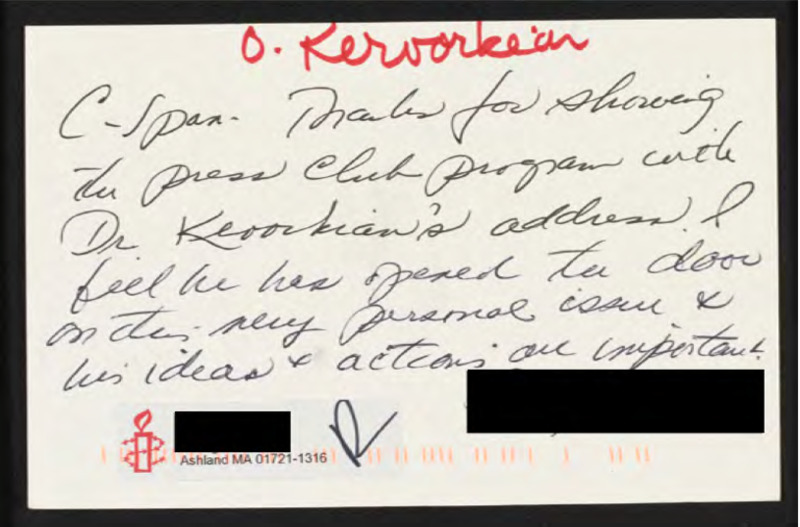 O. Kervorkian
C-Span- Thanks for showing
the press Club program with
Dr Kevorkian's address. I
feel he has opened the door
on this very personal issue &
his ideas & actions are important.
Ashland MA 01721-1316
R